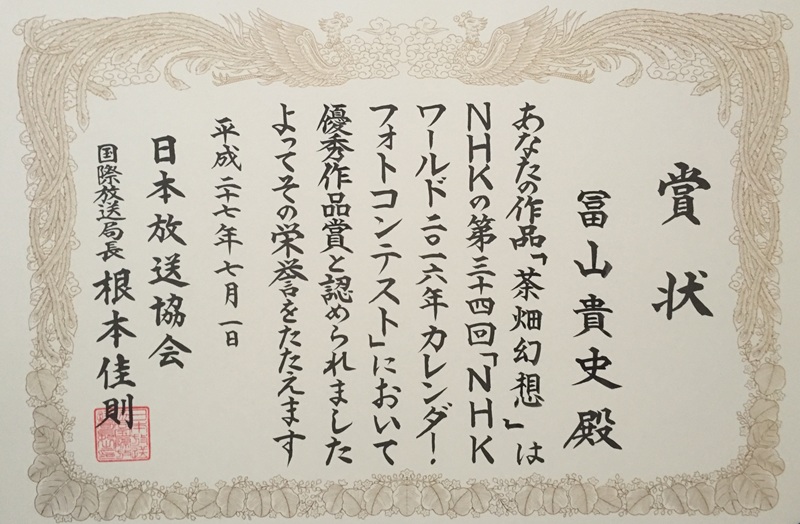 賞状
冨山貴史殿
あなたの作品「茶畑幻想」は
NHKの第三十四回「NHK
ワールド二〇一六年カレンダー
フォトコンテスト」において
優秀作品賞と認められました
よってその栄誉をたたえます
平成二十七年七月一日
日本放送協会
国際放送局長 根本佳則